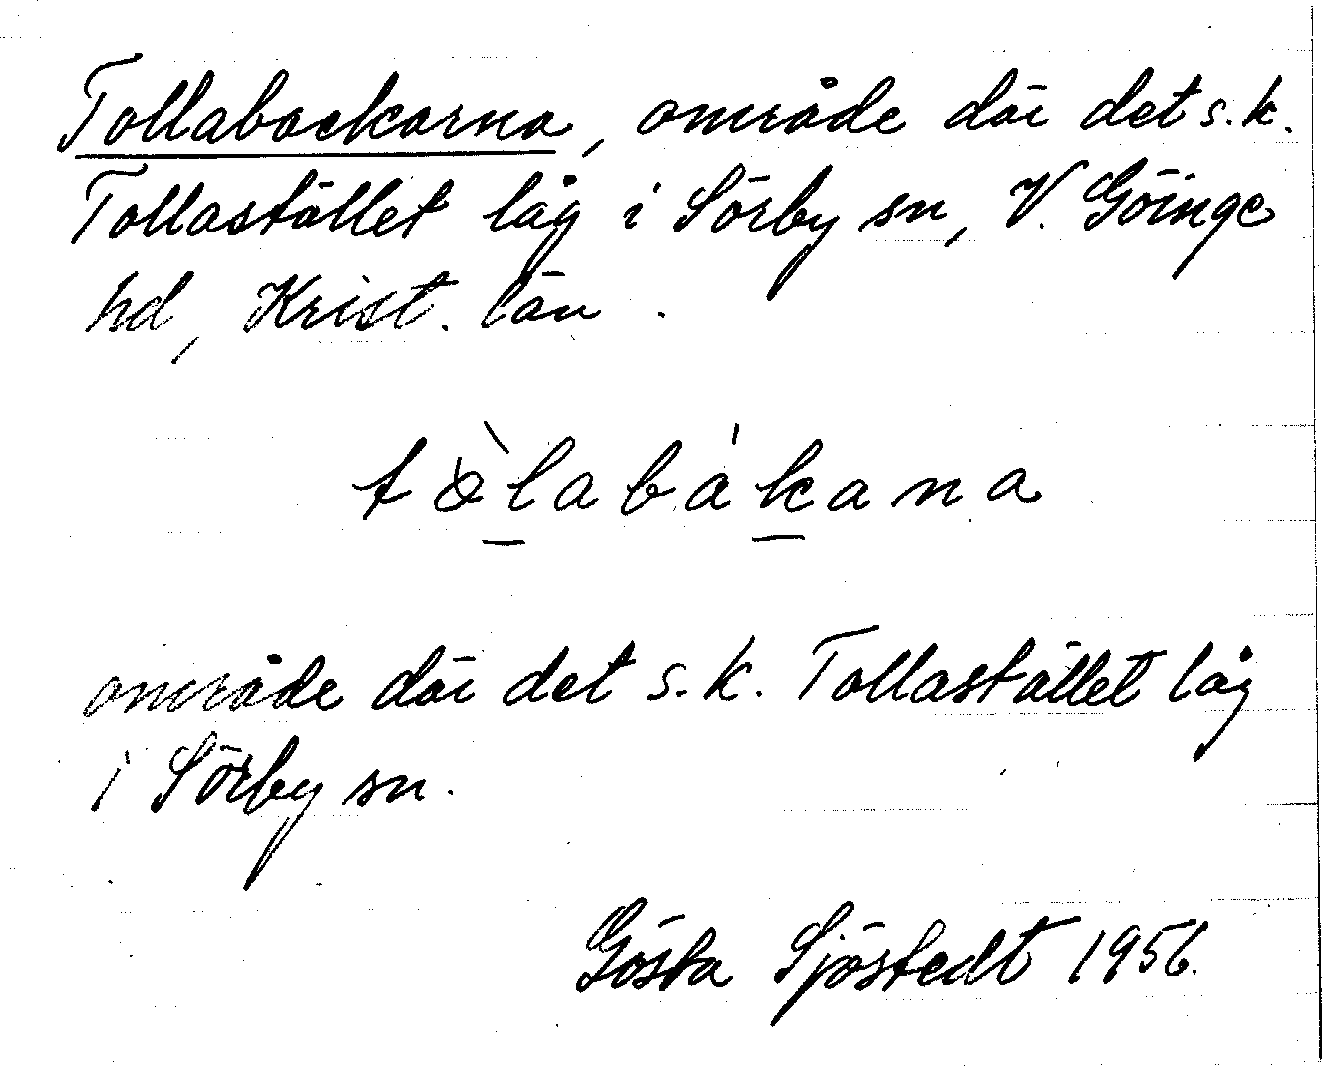 Tollabackarna, område där det s.k.
Tollastället låg i Sörby sn, V. Göinge
hd, Krist. län.
tòlabákana
område där det s.k. Tollastället låg
i Sörby sn.
Gösta Sjöstedt 1956.